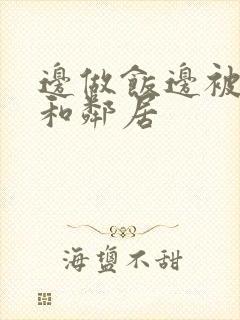 邊做飯邊被
和鄰居
海鹽不甜